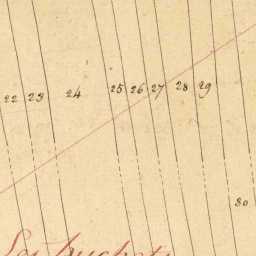 22 23 24 25 26 27 28 29
30
Les